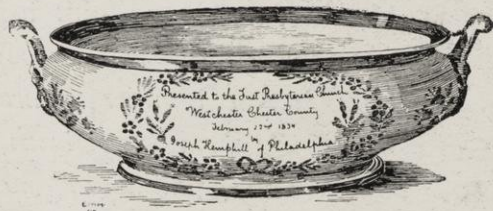 Presented to the First Presbyterian Church
Westchester Chester County
February 22nd 1834
by
Joseph Hemphill of Philadelphia